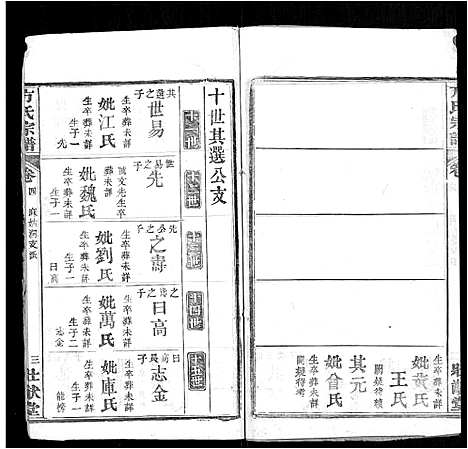 方氏宗譜
卷
妣黄氏
生卒葬未詳
王氏
關疑待考
其元
生卒葬未詳
妣曾氏
關疑待考
十世其選公支
十一世
十二世
十三世
十四世
十五世
其選之子
世易
生卒葬未詳
妣江氏
生卒葬未詳
生子一
先
世易之子
先
號文先生卒葬未詳
妣魏氏
生卒葬未詳
生子一
先之子
之壽
生卒葬未詳
妣劉氏
生卒葬未詳
生子一
日高
之壽之子
日高
生卒葬未詳
妣萬氏
生卒葬未詳
生子二
志金
日高長子
志金
生卒葬未詳
妣庫氏
生卒葬未詳
生子一
能榜
方氏宗譜
卷四
三
壯猷堂